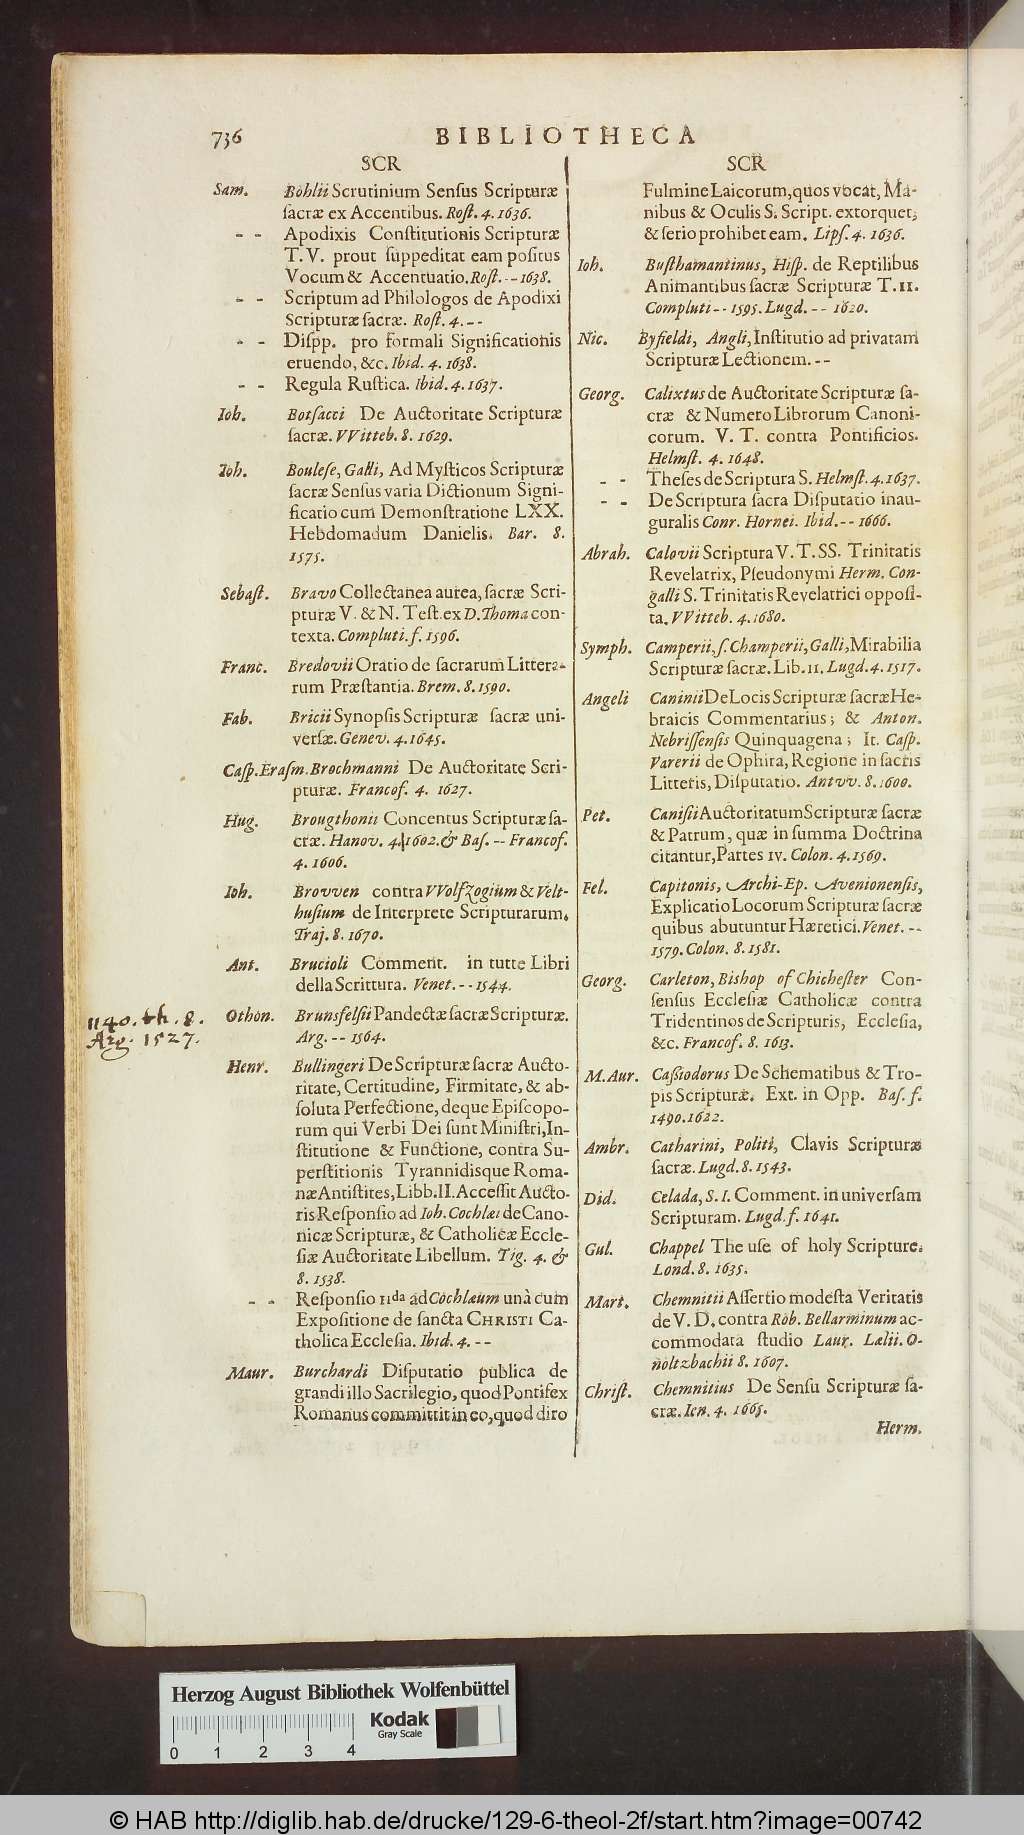 736
BIBLIOTHECA
SCR
Sam. Bohlii Scrutinium Senſus Scripturæ
ſacræ ex Accentibus. Roſt. 4. 1636.
- - Apodixis Conſtitutionis Scripturæ
T. V. prout ſuppeditat eam poſitus
Vocum & Accentuatio. Roſt. -- 1638.
- - Scriptum ad Philologos de Apodixi
Scripturæ ſacræ. Roſt. 4. --
- - Diſpp. pro formali Significationis
eruendo, &c. Ibid. 4. 1638.
- - Regula Ruſtica. Ibid. 4. 1637.
Ioh. Botſacci De Auctoritate Scripturæ
ſacræ. VVitteb. 8. 1629.
Ioh. Bouleſe, Galli, Ad Myſticos Scripturæ
ſacræ Senſus varia Dictionum Signi-
ficatio cum Demonſtratione LXX.
Hebdomadum Danielis. Bar. 8.
1575.
Sebaſt. Bravo Collectanea aurea, ſacræ Scri-
pturæ V. & N. Teſt. ex D. Thoma con-
texta. Compluti. f. 1596.
Franc. Bredovii Oratio de ſacrarum Littera-
rum Præſtantia. Brem. 8. 1590.
Fab. Bricii Synopſis Scripturæ ſacræ uni-
verſæ. Genev. 4. 1645.
Caſp. Eraſm. Brochmanni De Auctoritate Scri-
pturæ. Francof. 4. 1627.
Hug. Brougthonii Concentus Scripturæ ſa-
cræ. Hanov. 4. 1602. & Baſ. -- Francof.
4. 1606.
Ioh. Brovven contra VVolfzogium & Velt-
huſium de Interprete Scripturarum.
Traj. 8. 1670.
Ant. Brucioli Comment. in tutte Libri
della Scrittura. Venet. -- 1544.
1140. th. 8.
Arg. 1527.
Othon. Brunsfelſii Pandectæ ſacræ Scripturæ.
Arg. -- 1564.
Henr. Bullingeri De Scripturæ ſacræ Aucto-
ritate, Certitudine, Firmitate, & ab-
ſoluta Perfectione, deque Epiſcopo-
rum qui Verbi Dei ſunt Miniſtri, In-
ſtitutione & Functione, contra Su-
perſtitionis Tyrannidisque Roma-
næ Antiſtites, Libb. II. Acceſſit Aucto-
ris Reſponſio ad Ioh. Cochlæi de Cano-
nicæ Scripturæ, & Catholicæ Eccle-
ſiæ Auctoritate Libellum. Tig. 4. &
8. 1538.
- - Reſponſio IIda ad Cochlæum unà cum
Expoſitione de ſancta CHRISTI Ca-
tholica Eccleſia. Ibid. 4. --
Maur. Burchardi Diſputatio publica de
grandi illo Sacrilegio, quod Pontifex
Romanus committit in eo, quod diro
SCR
Fulmine Laicorum, quos vocat, Ma-
nibus & Oculis S. Script. extorquet,
& ſerio prohibet eam. Lipſ. 4. 1636.
Ioh. Buſthamantinus, Hiſp. de Reptilibus
Animantibus ſacræ Scripturæ T. II.
Compluti -- 1595. Lugd. -- 1620.
Nic. Byfieldi, Angli, Inſtitutio ad privatam
Scripturæ Lectionem. --
Georg. Calixtus de Auctoritate Scripturæ ſa-
cræ & Numero Librorum Canoni-
corum. V. T. contra Pontificios.
Helmſt. 4. 1648.
- - Theſes de Scriptura S. Helmſt. 4. 1637.
- - De Scriptura ſacra Diſputatio inau-
guralis Conr. Hornei. Ibid. -- 1666.
Abrah. Calovii Scriptura V. T. SS. Trinitatis
Revelatrix, Pſeudonymi Herm. Con-
galli S. Trinitatis Revelatrici oppoſi-
ta. VVitteb. 4. 1680.
Symph. Camperii, ſ. Champerii, Galli, Mirabilia
Scripturæ ſacræ. Lib. II. Lugd. 4. 1517.
Angeli Caninii De Locis Scripturæ ſacræ He-
braicis Commentarius; & Anton.
Nebriſſenſis Quinquagena; It. Caſp.
Varerii de Ophira, Regione in ſacris
Litteris, Diſputatio. Antvv. 8. 1600.
Pet. Caniſii Auctoritatum Scripturæ ſacræ
& Patrum, quæ in ſumma Doctrina
citantur, Partes IV. Colon. 4. 1569.
Fel. Capitonis, Archi-Ep. Avenionenſis,
Explicatio Locorum Scripturæ ſacræ
quibus abutuntur Hæretici. Venet. --
1579. Colon. 8. 1581.
Georg. Carleton, Bishop of Chicheſter Con-
ſenſus Eccleſiæ Catholicæ contra
Tridentinos de Scripturis, Eccleſia,
&c. Francof. 8. 1613.
M. Aur. Caſſiodorus De Schematibus & Tro-
pis Scripturæ. Ext. in Opp. Baſ. f.
1490. 1622.
Ambr. Catharini, Politi, Clavis Scripturæ
ſacræ. Lugd. 8. 1543.
Did. Celada, S. I. Comment. in univerſam
Scripturam. Lugd. f. 1641.
Gul. Chappel The uſe of holy Scripture.
Lond. 8. 1635.
Mart. Chemnitii Aſſertio modeſta Veritatis
de V. D. contra Rob. Bellarminum ac-
commodata ſtudio Laur. Lælii. O-
noltzbachii 8. 1607.
Chriſt. Chemnitius De Senſu Scripturæ ſa-
cræ. Ien. 4. 1665.
Herm.
Herzog August Bibliothek Wolfenbüttel
Kodak
Gray Scale
0 1 2 3 4
© HAB http://diglib.hab.de/drucke/129-6-theol-2f/start.htm?image=00742